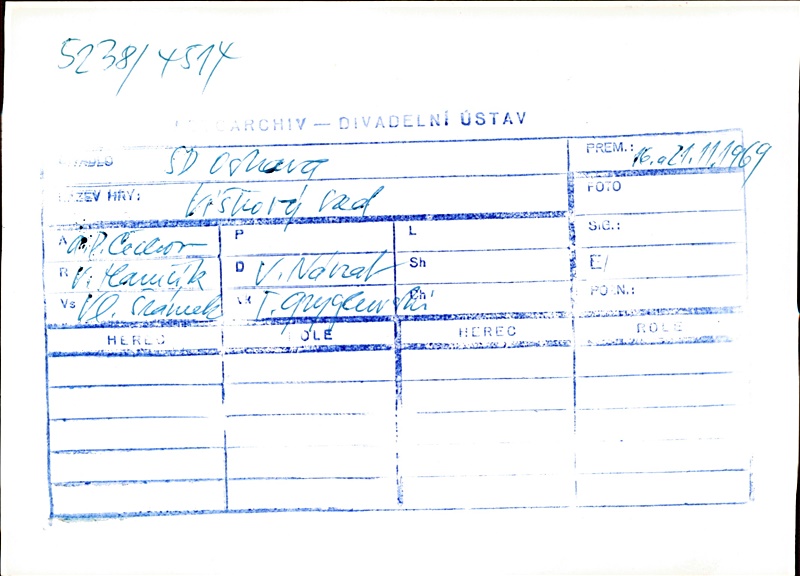 5238/4514
ARCHIV — DIVADELNÍ ÚSTAV
SD Ostrava PREM.: 16. a 21.11.1969
NÁZEV HRY: Višňový sad FOTO
A A.P. Čechov P L SIG.:
R V. Hamšík D V. Návrat Sh E/
Vs Vl. Šrámek T. Gryglewski Ch/ POZN.:
HEREC ROLE HEREC ROLE